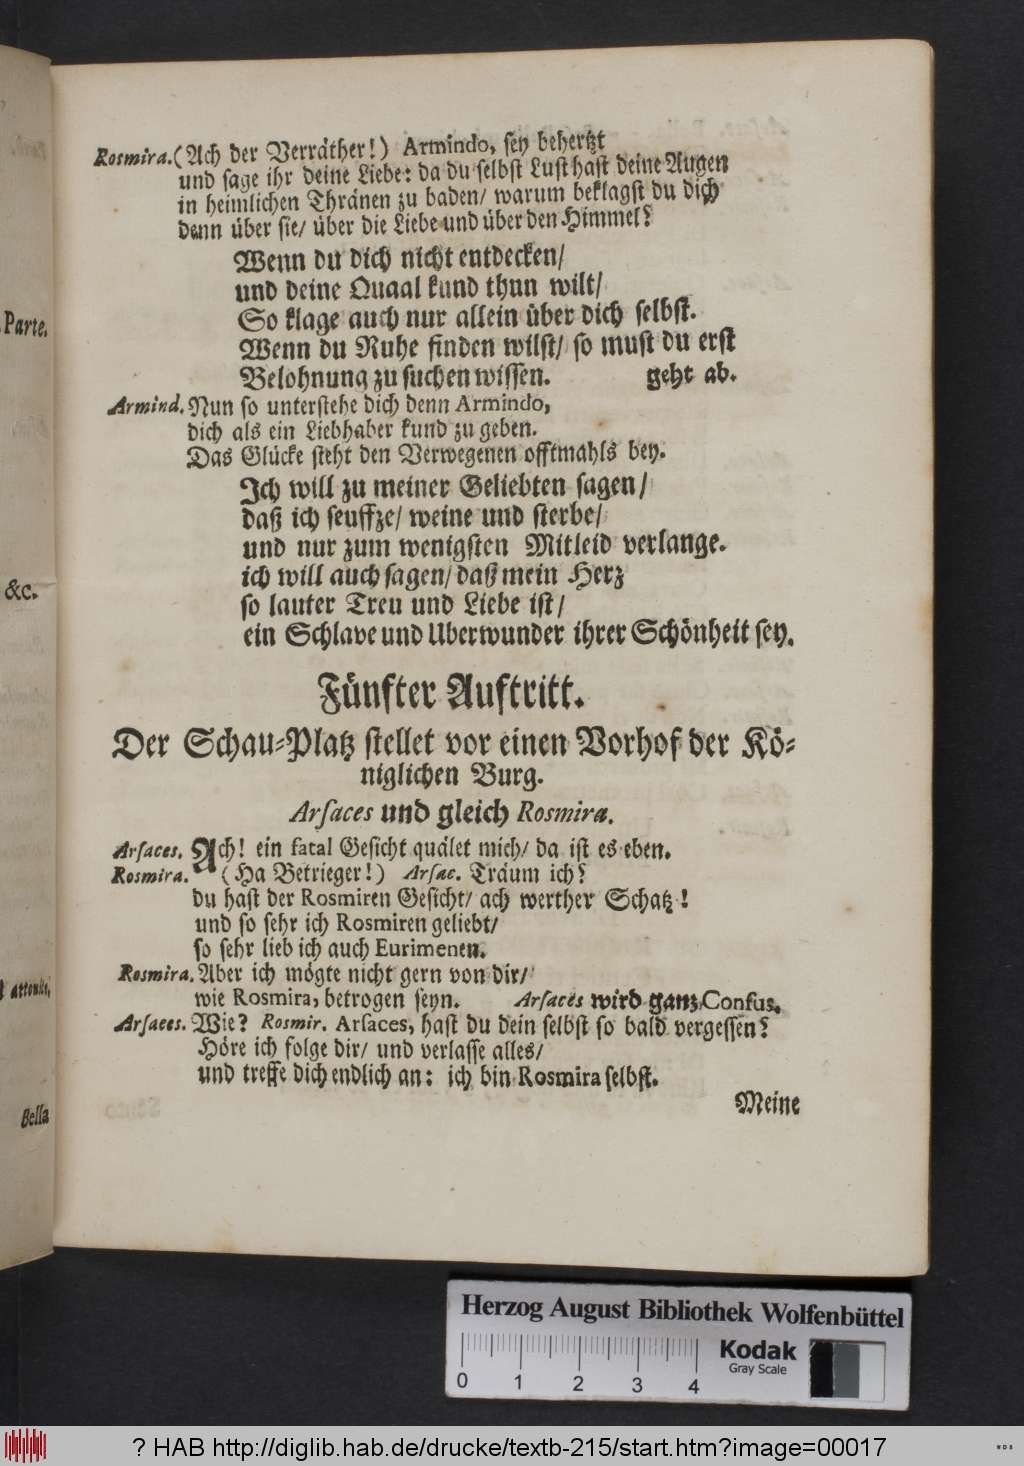 Parte.
&c.
Bella
Rosmira. (Ach der Verräther!) Armindo, sey behertzt
und sage ihr deine Liebe: da du selbst Lust hast deine Augen
in heimlichen Thränen zu baden/ warum beklagst du dich
denn über sie/ über die Liebe und über den Himmel?
Wenn du dich nicht entdecken/
und deine Quaal kund thun wilt/
So klage auch nur allein über dich selbst.
Wenn du Ruhe finden wilst/ so must du erst
Belohnung zu suchen wissen. geht ab.
Armind. Nun so unterstehe dich denn Armindo,
dich als ein Liebhaber kund zu geben.
Das Glücke steht den Verwegenen offtmahls bey.
Ich will zu meiner Geliebten sagen/
daß ich seuffze/ weine und sterbe/
und nur zum wenigsten Mitleid verlange.
ich will auch sagen/ daß mein Herz
so lauter Treu und Liebe ist/
ein Schlave und Uberwunder ihrer Schönheit sey.
Fünfter Auftritt.
Der Schau-Platz stellet vor einen Vorhof der Kö-
niglichen Burg.
Arsaces und gleich Rosmira.
Arsaces. Ach! ein fatal Gesicht quälet mich/ da ist es eben.
Rosmira. (Ha Betrieger!) Arsac. Träum ich?
du hast der Rosmiren Gesicht/ ach werther Schatz!
und so sehr ich Rosmiren geliebt/
so sehr lieb ich auch Eurimenen.
Rosmira. Aber ich mögte nicht gern von dir/
wie Rosmira, betrogen seyn. Arsaces wird ganz Confus.
Arsaces. Wie? Rosmir. Arsaces, hast du dein selbst so bald vergessen?
Höre ich folge dir/ und verlasse alles/
und treffe dich endlich an: ich bin Rosmira selbst.
Meine
Herzog August Bibliothek Wolfenbüttel
0 1 2 3 4
Kodak
Gray Scale
? HAB http://diglib.hab.de/drucke/textb-215/start.htm?image=00017